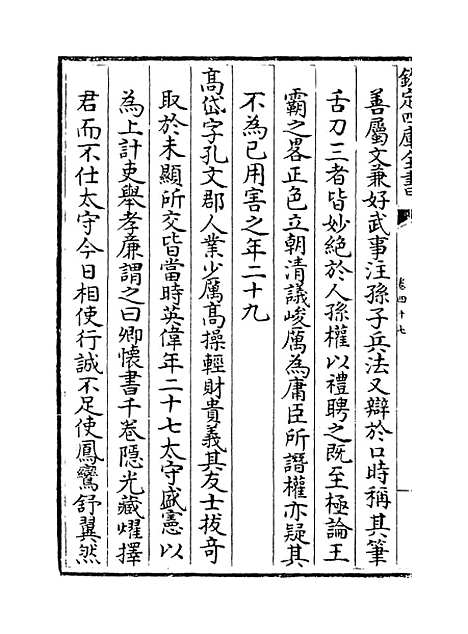 欽定四庫全書
卷四十七
善屬文兼好武事注孫子兵法又辯於口時稱其筆
舌刀三者皆妙絕於人孫權以禮聘之既至極論王
霸之畧正色立朝清議峻厲為庸臣所譖權亦疑其
不為已用害之年二十九
高岱字孔文郡人業少厲髙操輕財貴義其友士拔奇
取於未顯所交皆當時英偉年二十七太守盛憲以
為上計吏舉孝亷謂之曰卿懷書千卷隱光藏燿擇
君而不仕太守今日相使行誠不足使鳳鸞舒翼然